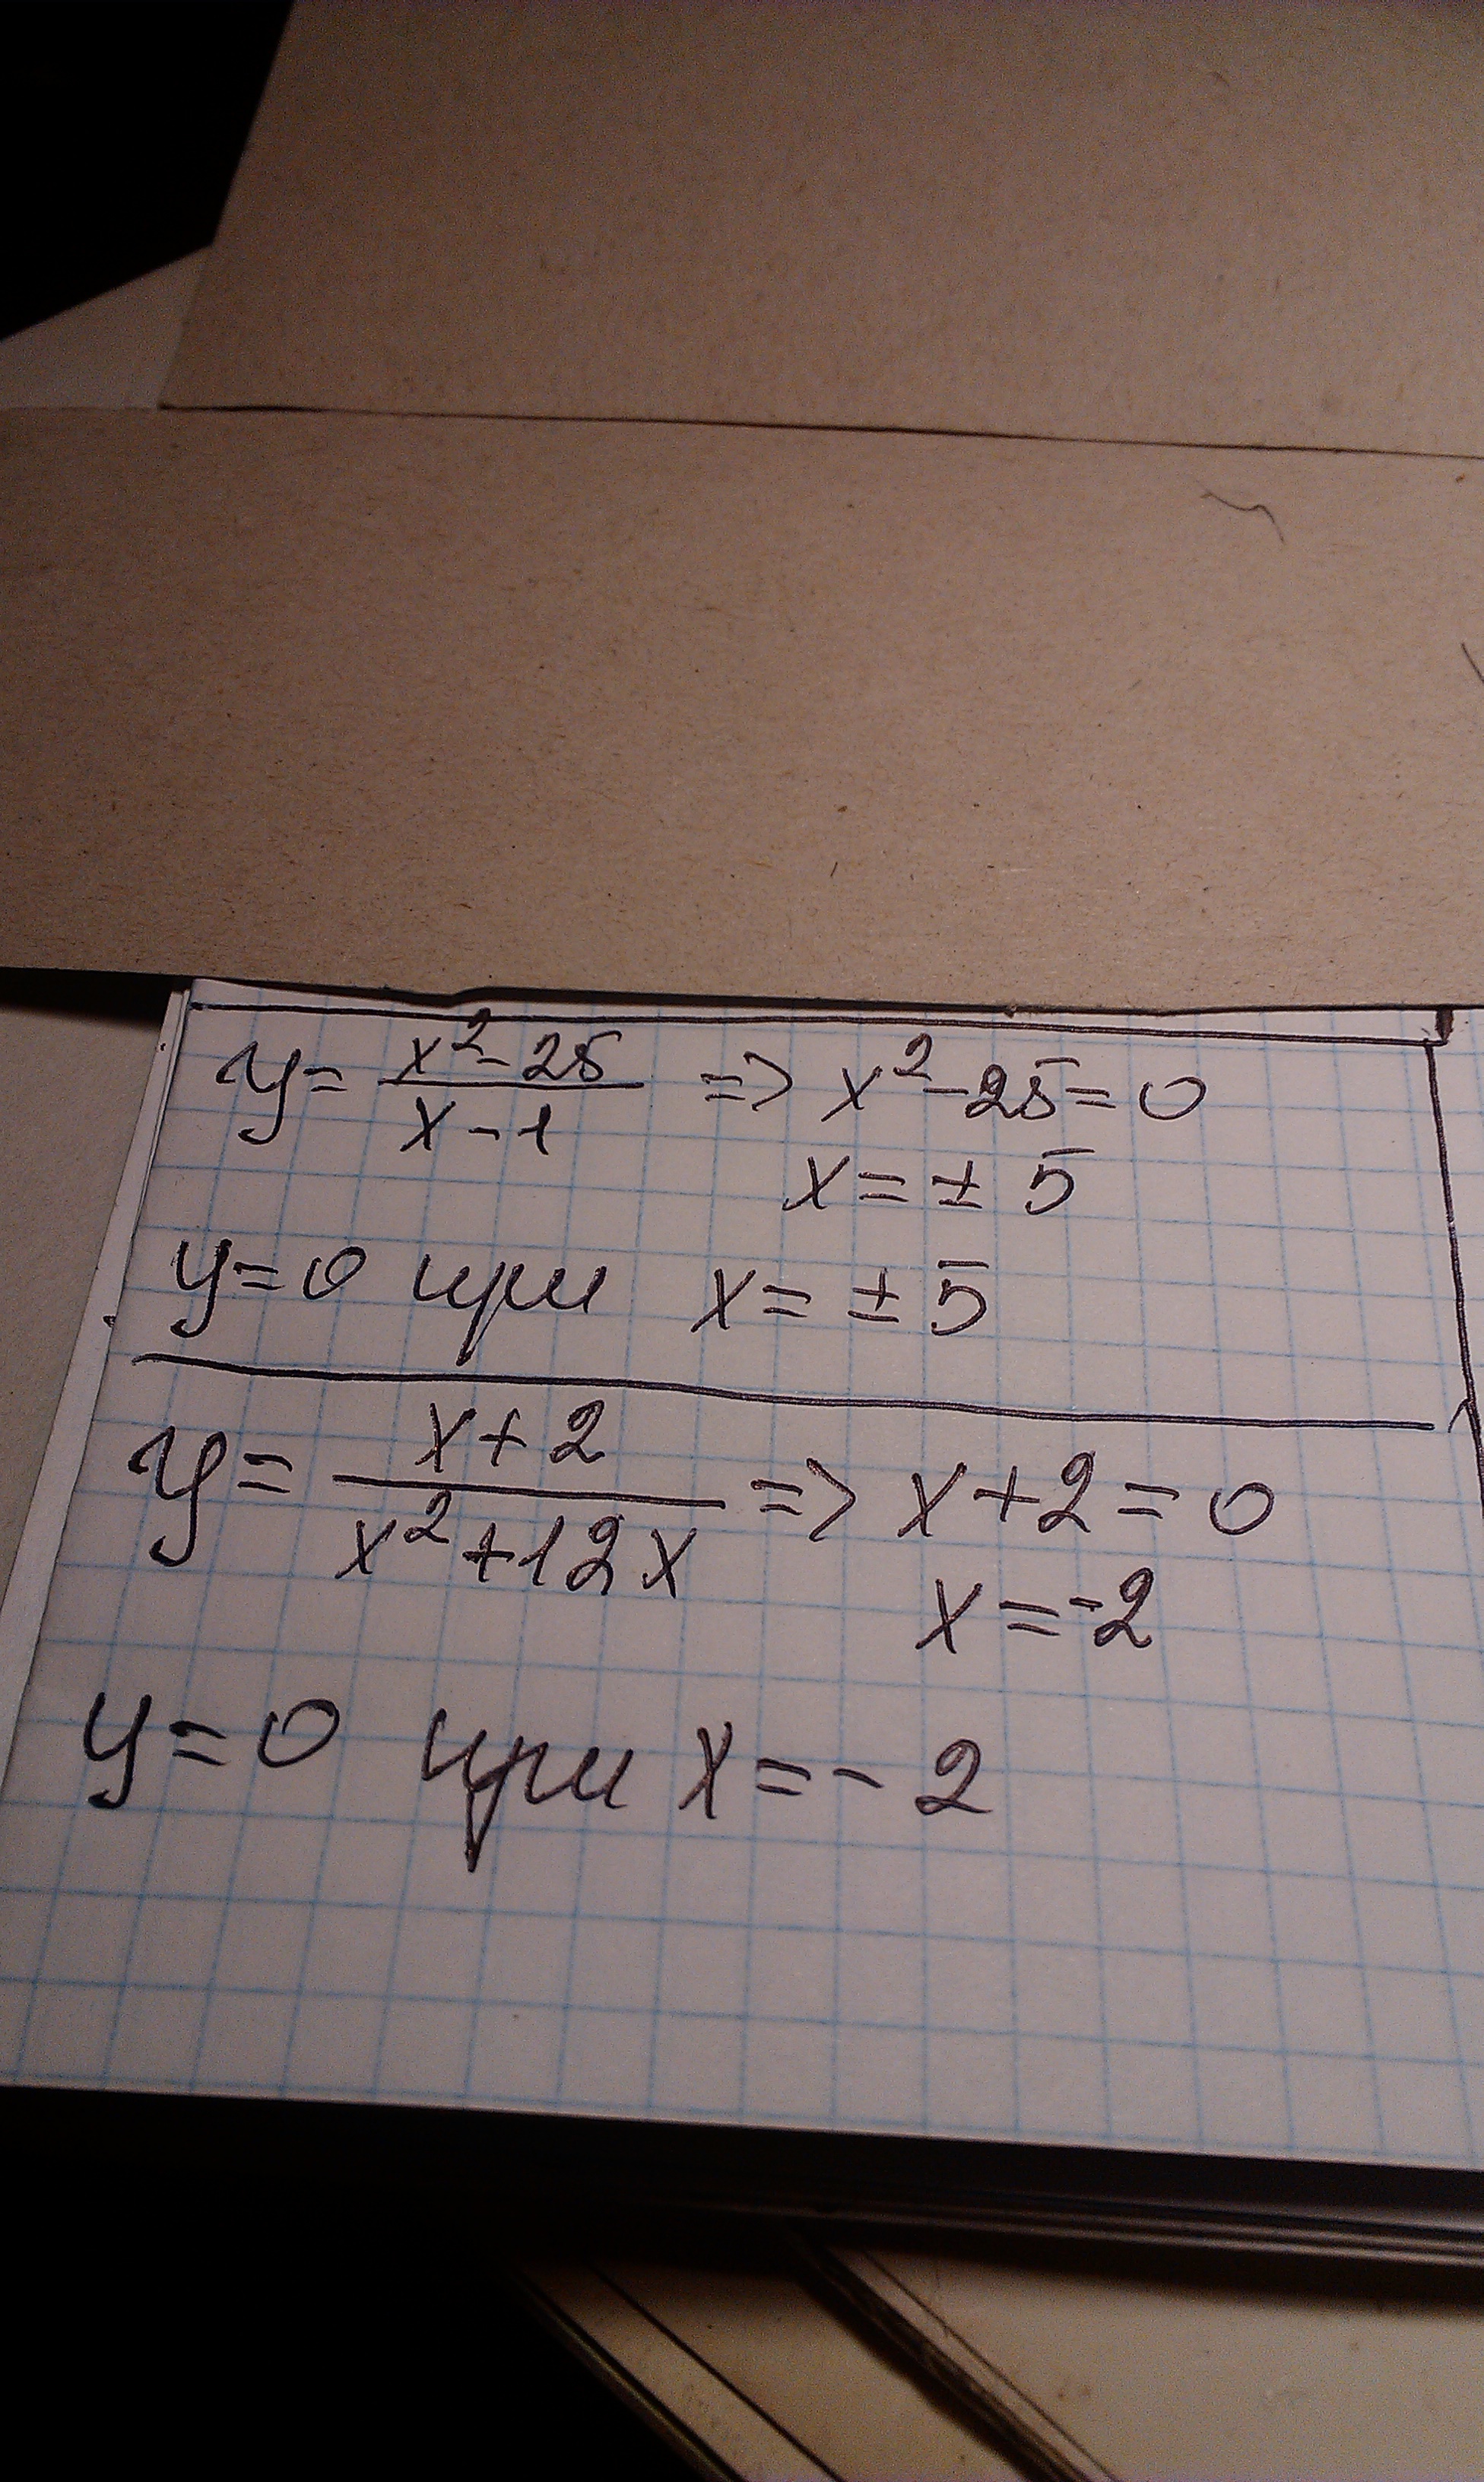 y = (x² - 25)/(x - 1) => x² - 25 = 0
x = ± 5
y = 0 при x = ± 5
y = (x + 2)/(x² + 12x) => x + 2 = 0
x = -2
y = 0 при x = - 2